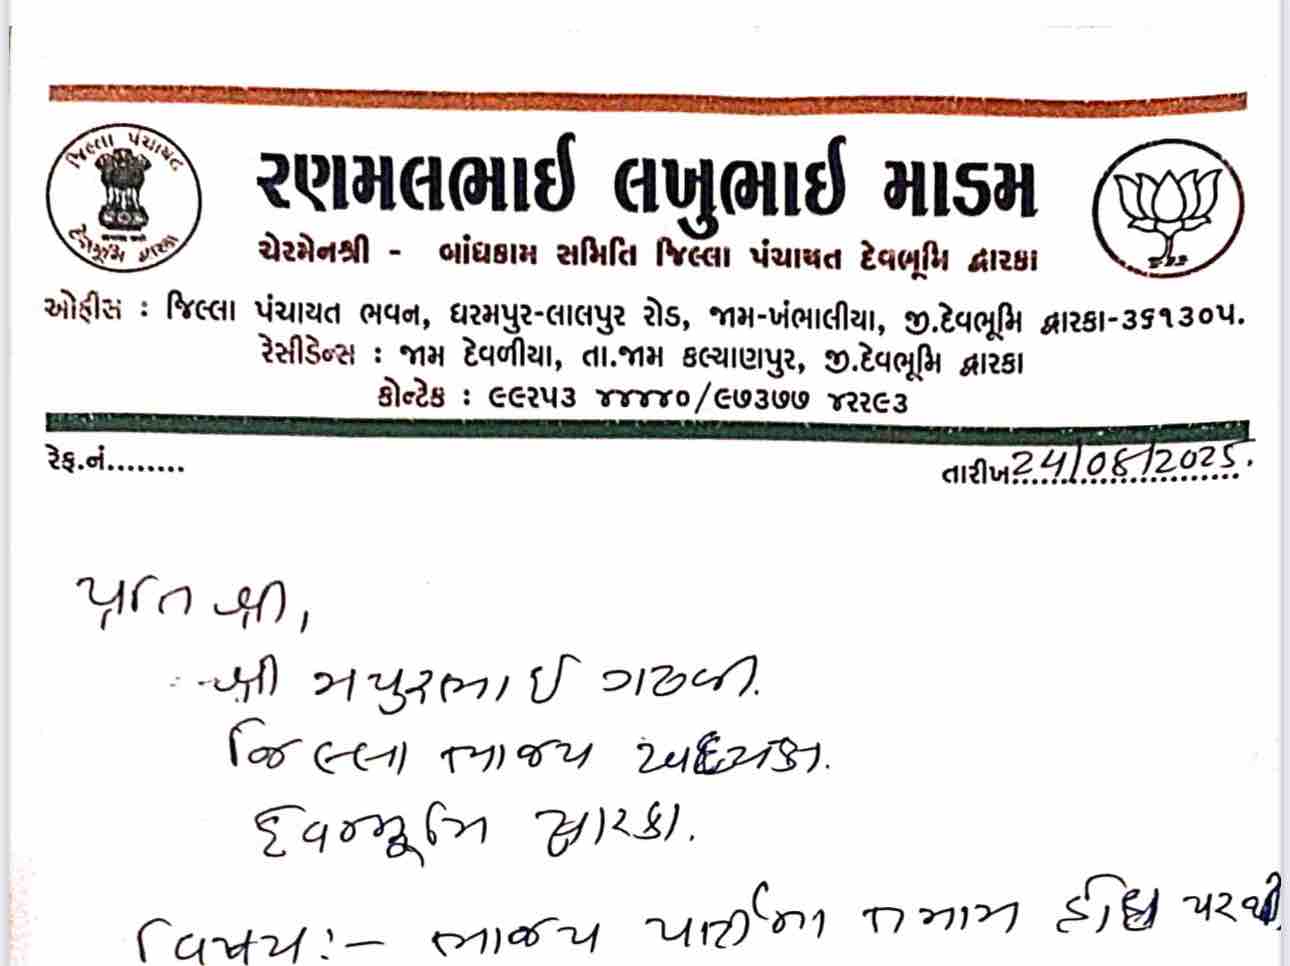 જિલ્લા પંચાયત
દેવભૂમિ દ્વારકા
રણમલભાઈ લખુભાઈ માડમ
ચેરમેનશ્રી - બાંધકામ સમિતિ જિલ્લા પંચાયત દેવભૂમિ દ્વારકા
ઓફીસ : જિલ્લા પંચાયત ભવન, ધરમપુર-લાલપુર રોડ, જામ-ખંભાળીયા, જી.દેવભૂમિ દ્વારકા-૩૬૧૩૦૫.
રેસીડેન્સ : જામ દેવળીયા, તા.જામ કલ્યાણપુર, જી.દેવભૂમિ દ્વારકા
કોન્ટેક : ૯૯૨૫૩ ૪૪૪૪૦/૯૭૩૭૭ ૪૨૨૯૩
રેફ.નં........ તારીખ 24/08/2025.
પ્રતિ શ્રી,
શ્રી મયુરભાઈ ગઢવી.
જિલ્લા ભાજપ અધ્યક્ષ.
દેવભૂમિ દ્વારકા.
વિષય :- ભાજપ પાર્ટીના તમામ હોદ્દા પરથી